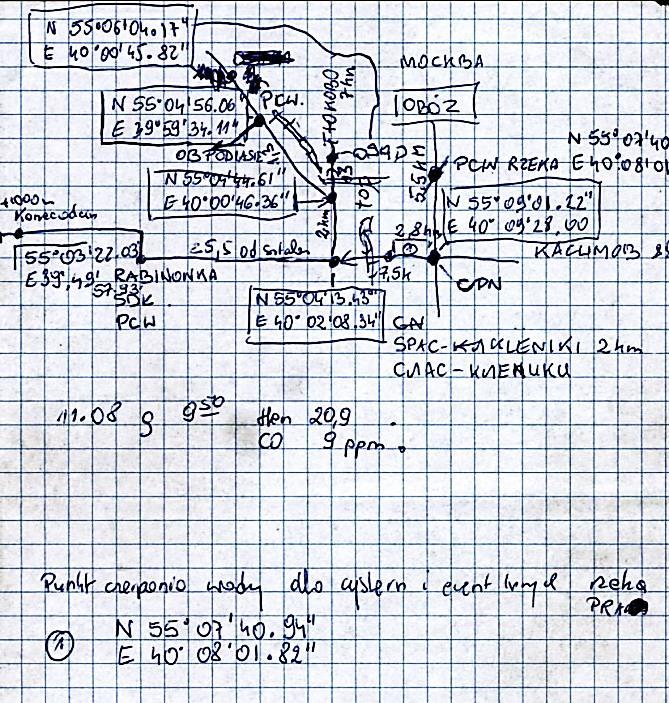 N 55°06'04.17"
E 40°00'45.82"
МОСКВА
OBÓZ
N 55°04'56.06"
E 39°59'34.11"
PCW.
ТЮКОВО
7km
OB PODLASIE
N 55°04'44.61"
E 40°00'46.36"
2km
5,5 km
N 55°07'40
PCW RZEKA E 40°08'01
N 55°09'01.22"
E 40° 09'28,60
2,8km
КАСИМОВ
+1000m
55°03'22.03
E39°,49'
57.93"
RABINOWKA
SDK
PCW
25,5 od
7,5k
CPN
N 55°04'13.43"
E 40°02'08.34"
GN
SPAC-KLKLENIKI 2km
СПАС-КЛЕПИКИ
11.08 g 9⁵⁰ tlen 20,9
CO 9 ppm.
Punkt czerpania wody dla cystern i event innych rzeka
PRA
1 N 55°07'40.94"
E 40°08'01.82"